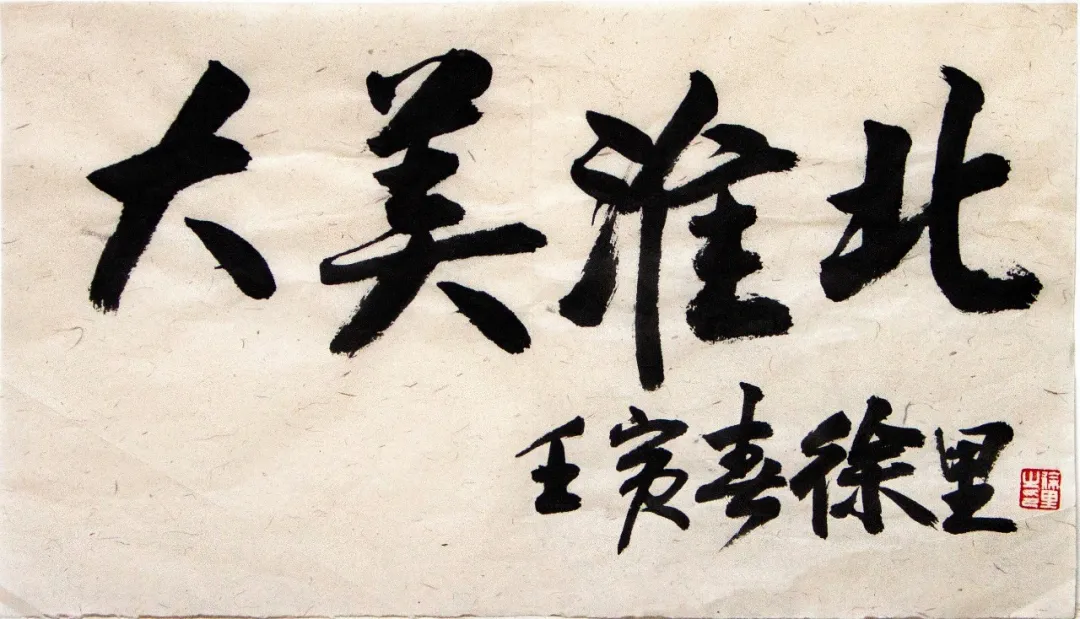 大美淮北
壬寅春徐里
徐里之印